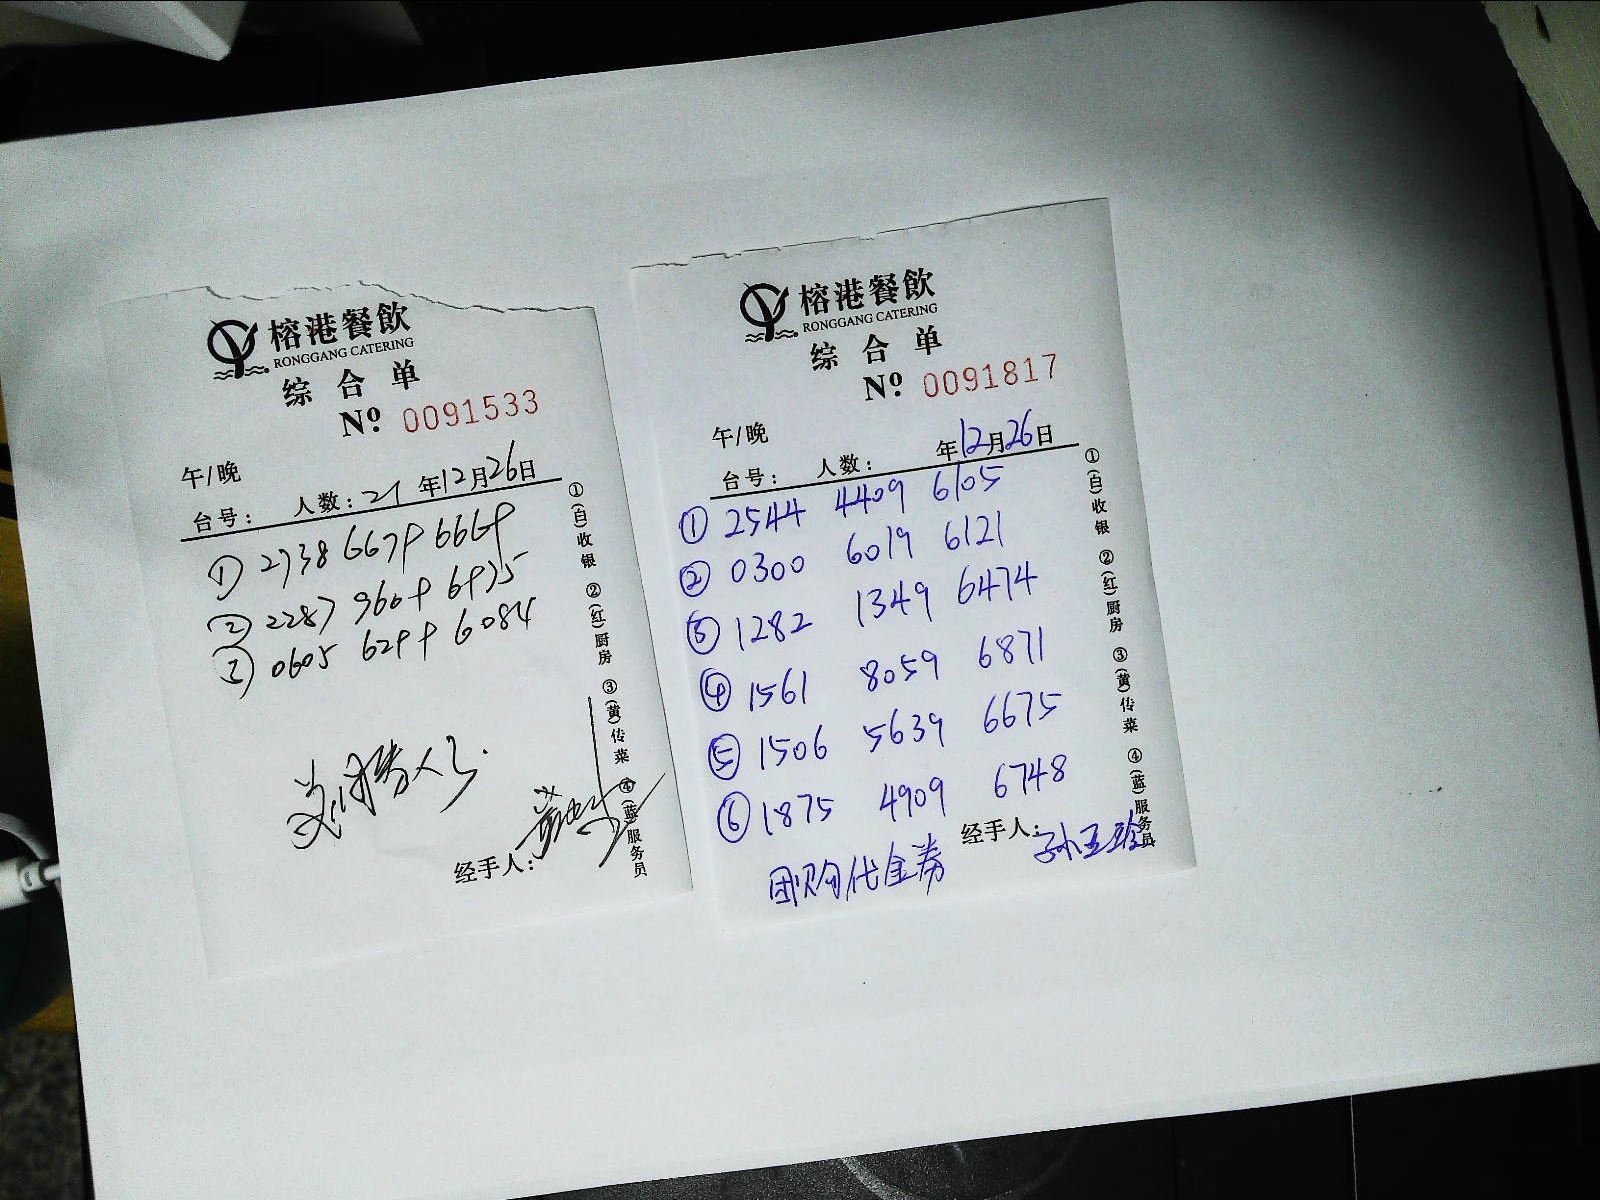 榕港餐飲
RONGGANG CATERING
综合单
Nº 0091533
午/晚
台号： 人数：21 年12月26日
① 2738 6679 6669
② 2287 9609 6975
③ 0605 6299 6084
经手人：
①(白)收银 ②(红)厨房 ③(黄)传菜 ④(蓝)服务员
榕港餐飲
RONGGANG CATERING
综合单
Nº 0091817
午/晚
台号： 人数： 年12月26日
① 2544 4409 6105
② 0300 6019 6121
③ 1282 1349 6474
④ 1561 8059 6871
⑤ 1506 5639 6675
⑥ 1875 4909 6748
经手人：孙玉珍
团购代金券
①(白)收银 ②(红)厨房 ③(黄)传菜 ④(蓝)服务员